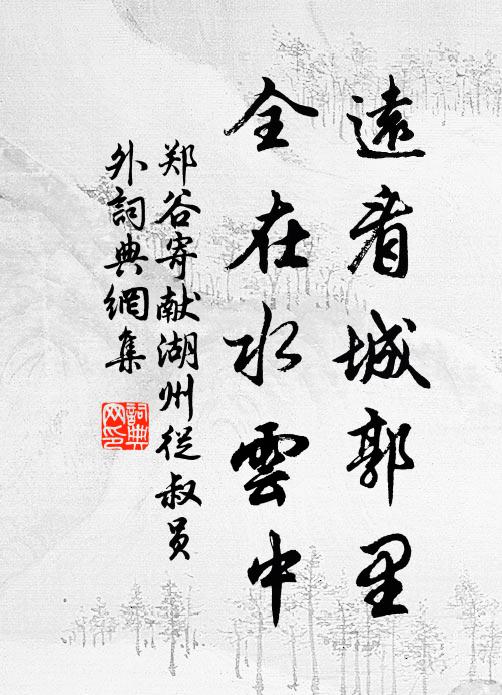 遠看城郭里
全在水雲中
郑谷寄献湖州從叔员
外詞典網集
詞典
网印